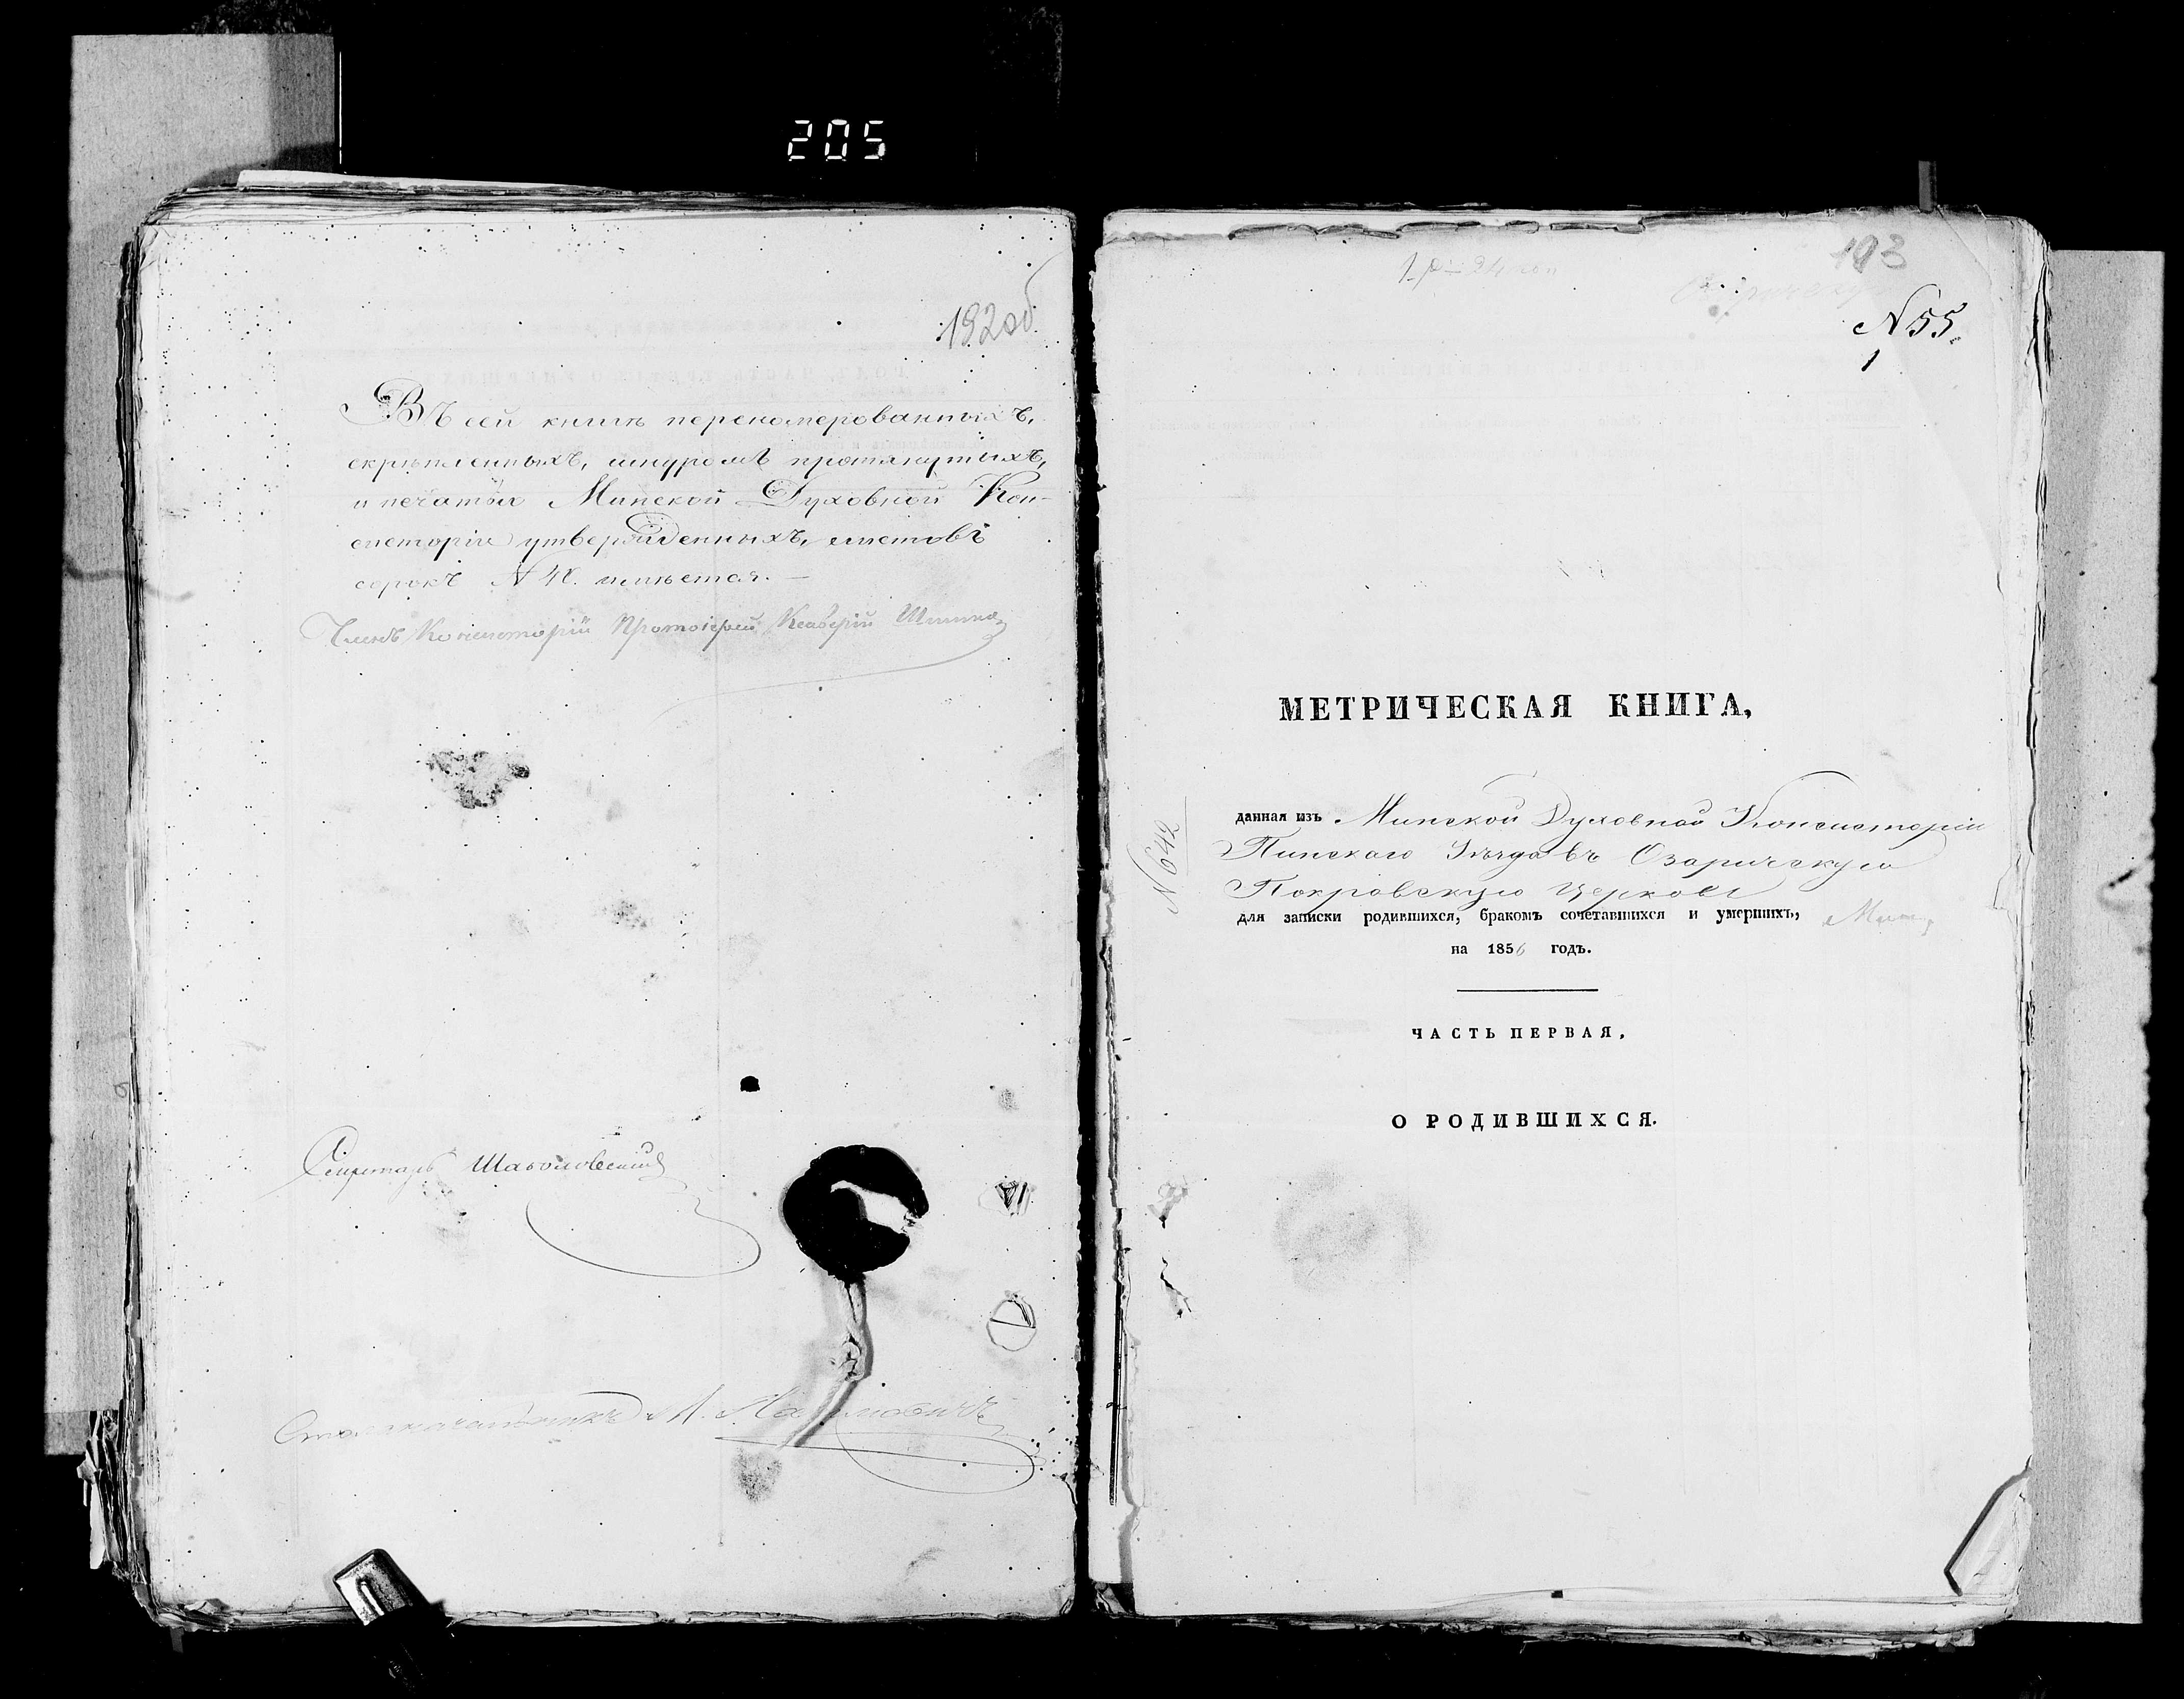 205
192об.
Въ сей книгѣ перенумерованныхъ,
скрѣпленныхъ, шнуромъ протянутыхъ,
и печатью Минской Духовной Кон-
систоріи утвержденныхъ, листовъ
сорокъ N 40. имѣется. —
Членъ Консисторіи Протоіерей Ксаверій
Секретарь
Столоначальникъ М.
193
N 55.
1
МЕТРИЧЕСКАЯ КНИГА,
данная изъ Минской Духовной Консисторіи
Пинскаго Уѣзда въ Озаричскую
Покровскую Церковь
для записки родившихся, бракомъ сочетавшихся и умершихъ,
на 1856 годъ.
N 642
ЧАСТЬ ПЕРВАЯ,
О РОДИВШИХСЯ.